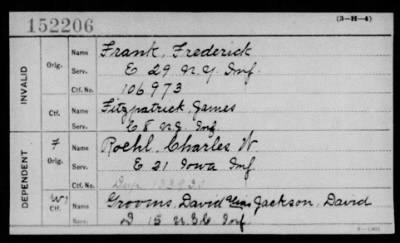 152206 (3-H-4)
INVALID
Orig. Name Frank, Frederick
Serv. E 29 N.Y. Inf.
Ctf. No. 106973
Ctf. Name Fitzpatrick, James
Serv. E 8 N.J. Inf
DEPENDENT
F Orig. Name Roehl, Charles W.
Serv. E 21 Iowa Inf
Ctf. No.
W Ctf. Name Grooms, David alias Jackson, David
Serv. D 15 U.S.C. Inf.